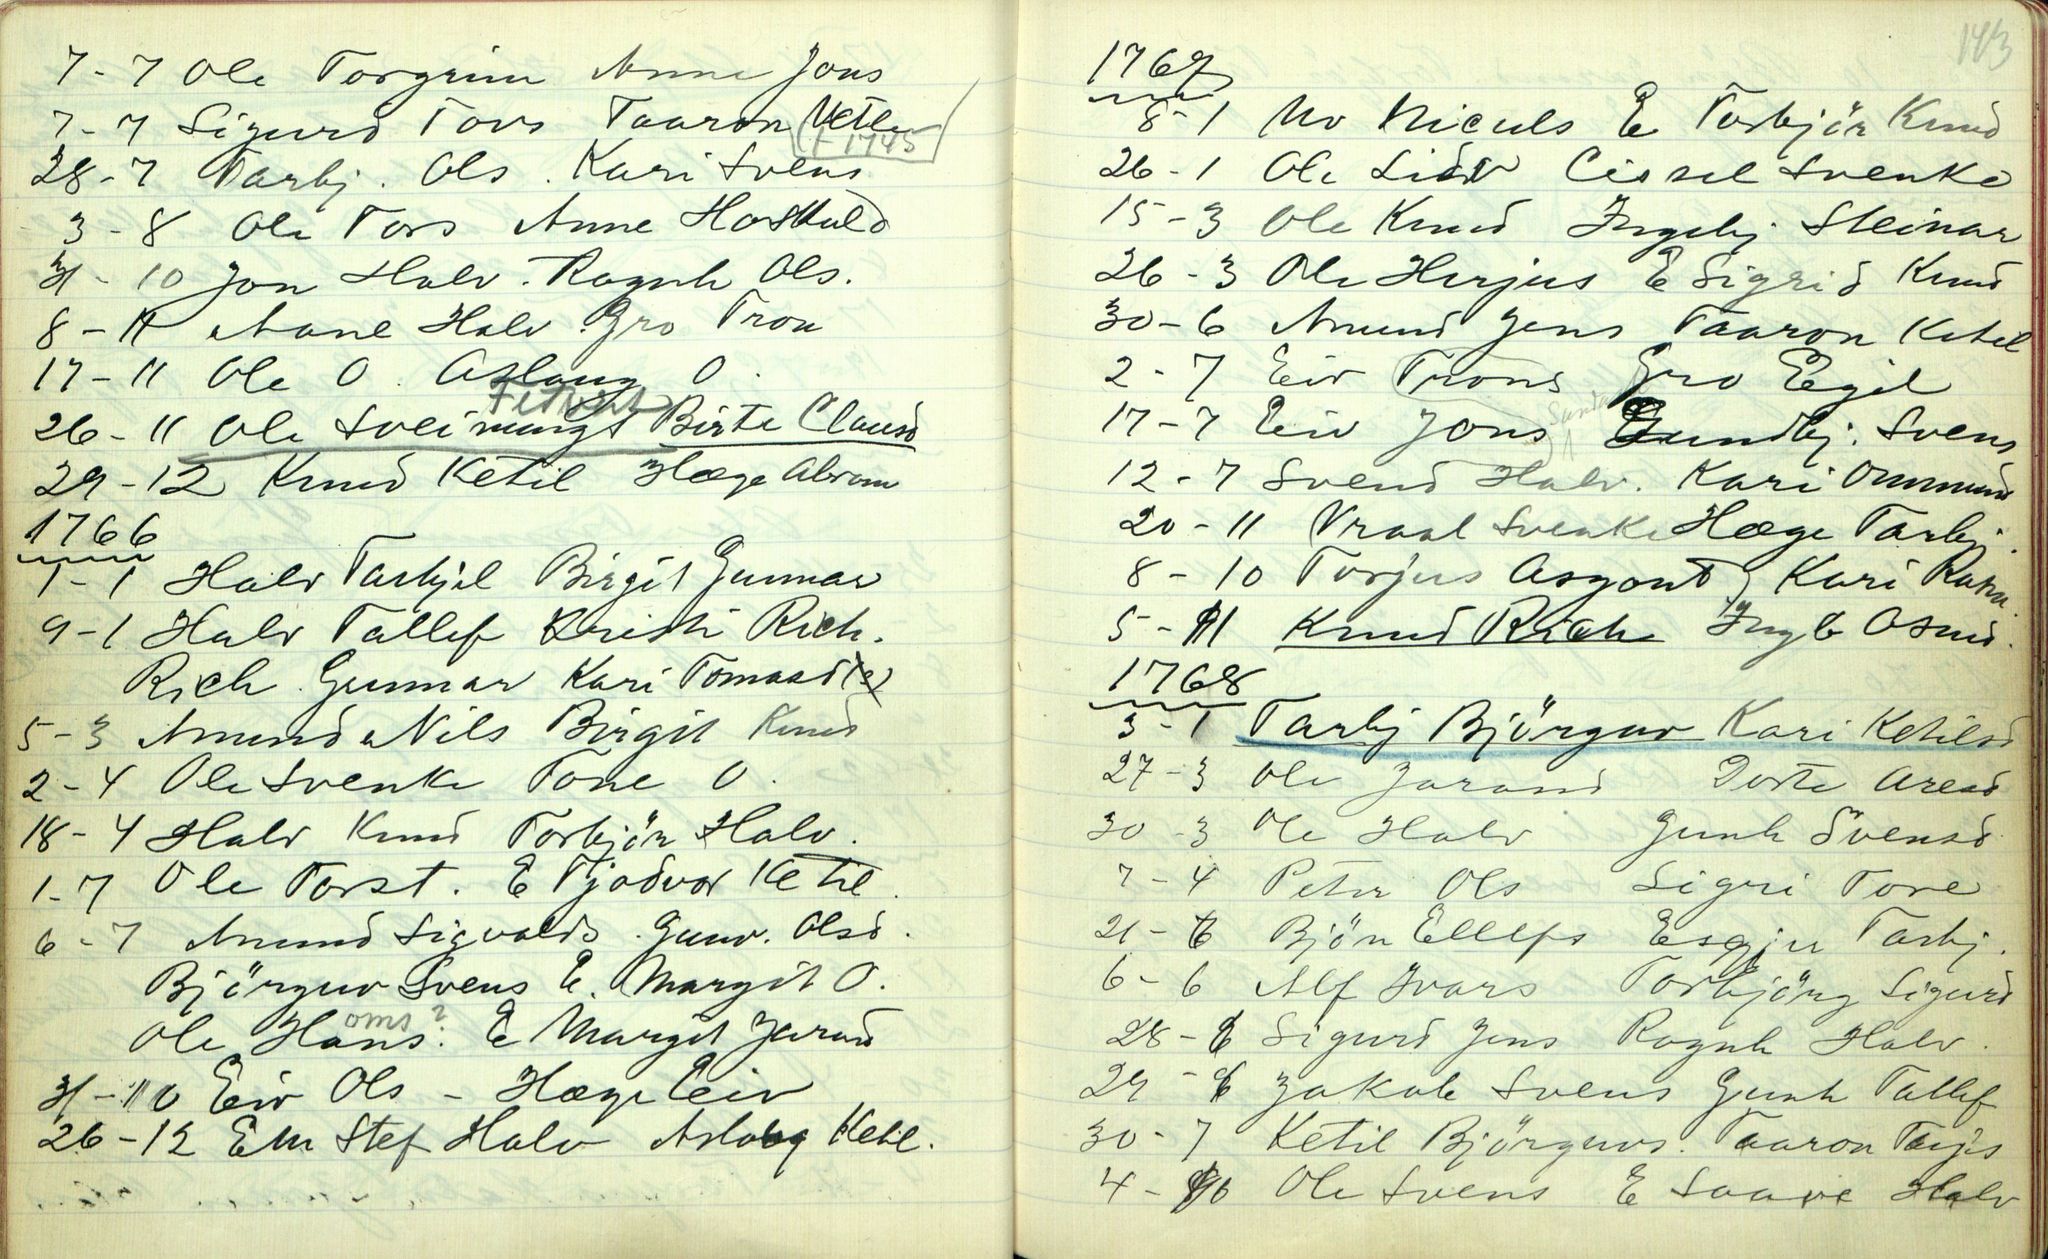 7-7 Ole Torgrim Anne Jons
7-7 Sigurd Tovs Taaron Vetle
(+ 1745
28-7 Tarbj. Ols. Kari Svens
3-8 Ole Tors Anne Hoskuld
31-10 Jon Halv. Ragnh Ols.
8-11 Aanel Halv. Gro Tron
17-11 Ole O. Aslaug O.
26-11 Ole Sveinungs Birte Clausd
29-12 Knud Ketil Hæge Abrom
1766
1-1 Halv Tarkjel Birgit Gunnar
9-1 Halv Tallef Kristi Rich.
Rich. Gunnar Kari Tomasd
5-3 Amund Nils Birgit Knud
2-4 Ole Svenke Tone O.
18-4 Halv Knud Torbjör Halv.
1-7 Ole Torst. E Tjodvor Ketil.
6-7 Amund Sigvalds. Gunv. Olsd.
Björguv Svens E. Margit O.
oms?
Ole Hans. E Margit Jarand
31-10 Eiv Ols - Hæge Eiv
26-12 Em Stef Halv Asloug Ketil.
143
1767
8-1 Niculs E Torbjör Knud
26-1 Ole Lidv Cissel Svenke
15-3 Ole Knud Ingebj Steinar
26-3 Ole Herjus E Sigrid Knud
30-6 Amund Jens Taaron Ketil
2-7 Eiv Trons Gro Egil
17-7 Eiv Jons Gundbj. Svens
12-7 Svend Halv. Kari Ommund
20-11 Vraal Svenke Hæge Tarbj.
8-10 Torjus Asgont Kari
5-11 Knud Rich Ingb Osmd.
1768
3-1 Tarbj Björguv Kari Ketilsd
27-3 Ole Jarand Dorte Aresd
30-3 Ole Halv Gunh Svensd
7-4 Peter Ols Sigri Tove
21-6 Bjön Ellefs Esgju Tarbj.
6-6 Alf Ivars Torbjörg Sigurd
28-6 Sigurd Jens Ragnh Halv.
29-6 Jakob Svens Gunh Tallef
30-7 Ketil Björguvs. Taaron Tarjs
4-10 Ole Svens E Saave Halv